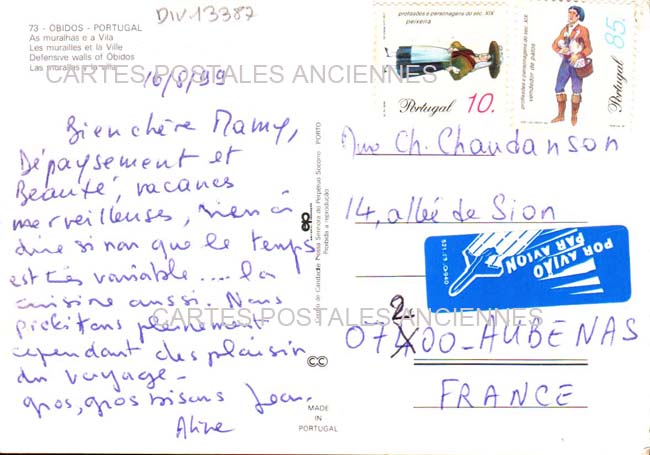 DIV.13387
73 - OBIDOS - PORTUGAL
As muralhas e a Vila
Les murailles et la Ville
Defensive walls of Óbidos
Las murallas y la villa
CARTES POSTALES ANCIENNES
16/8/99
Bien chère Mamy,
Dépaysement et
Beauté, vacances
merveilleuses, rien à
dire si non que le temps
est très variable.... la
cuisine aussi. Nous
profitons pleinement
cependant des plaisirs
du voyage -
gros, gros bisous Jean.
Aline
PORTO
Proibida a reprodução
MADE
IN
PORTUGAL
profissões e personagens do séc. XIX
peixeira
Portugal 10.
profissões e personagens do séc. XIX
vendedor de patos
Portugal 85.
Ch. Chaudanson
14, allée de Sion
POR AVIÃO
PAR AVION
CARTES POSTALES ANCIENNES
2
07400 - AUBENAS
FRANCE